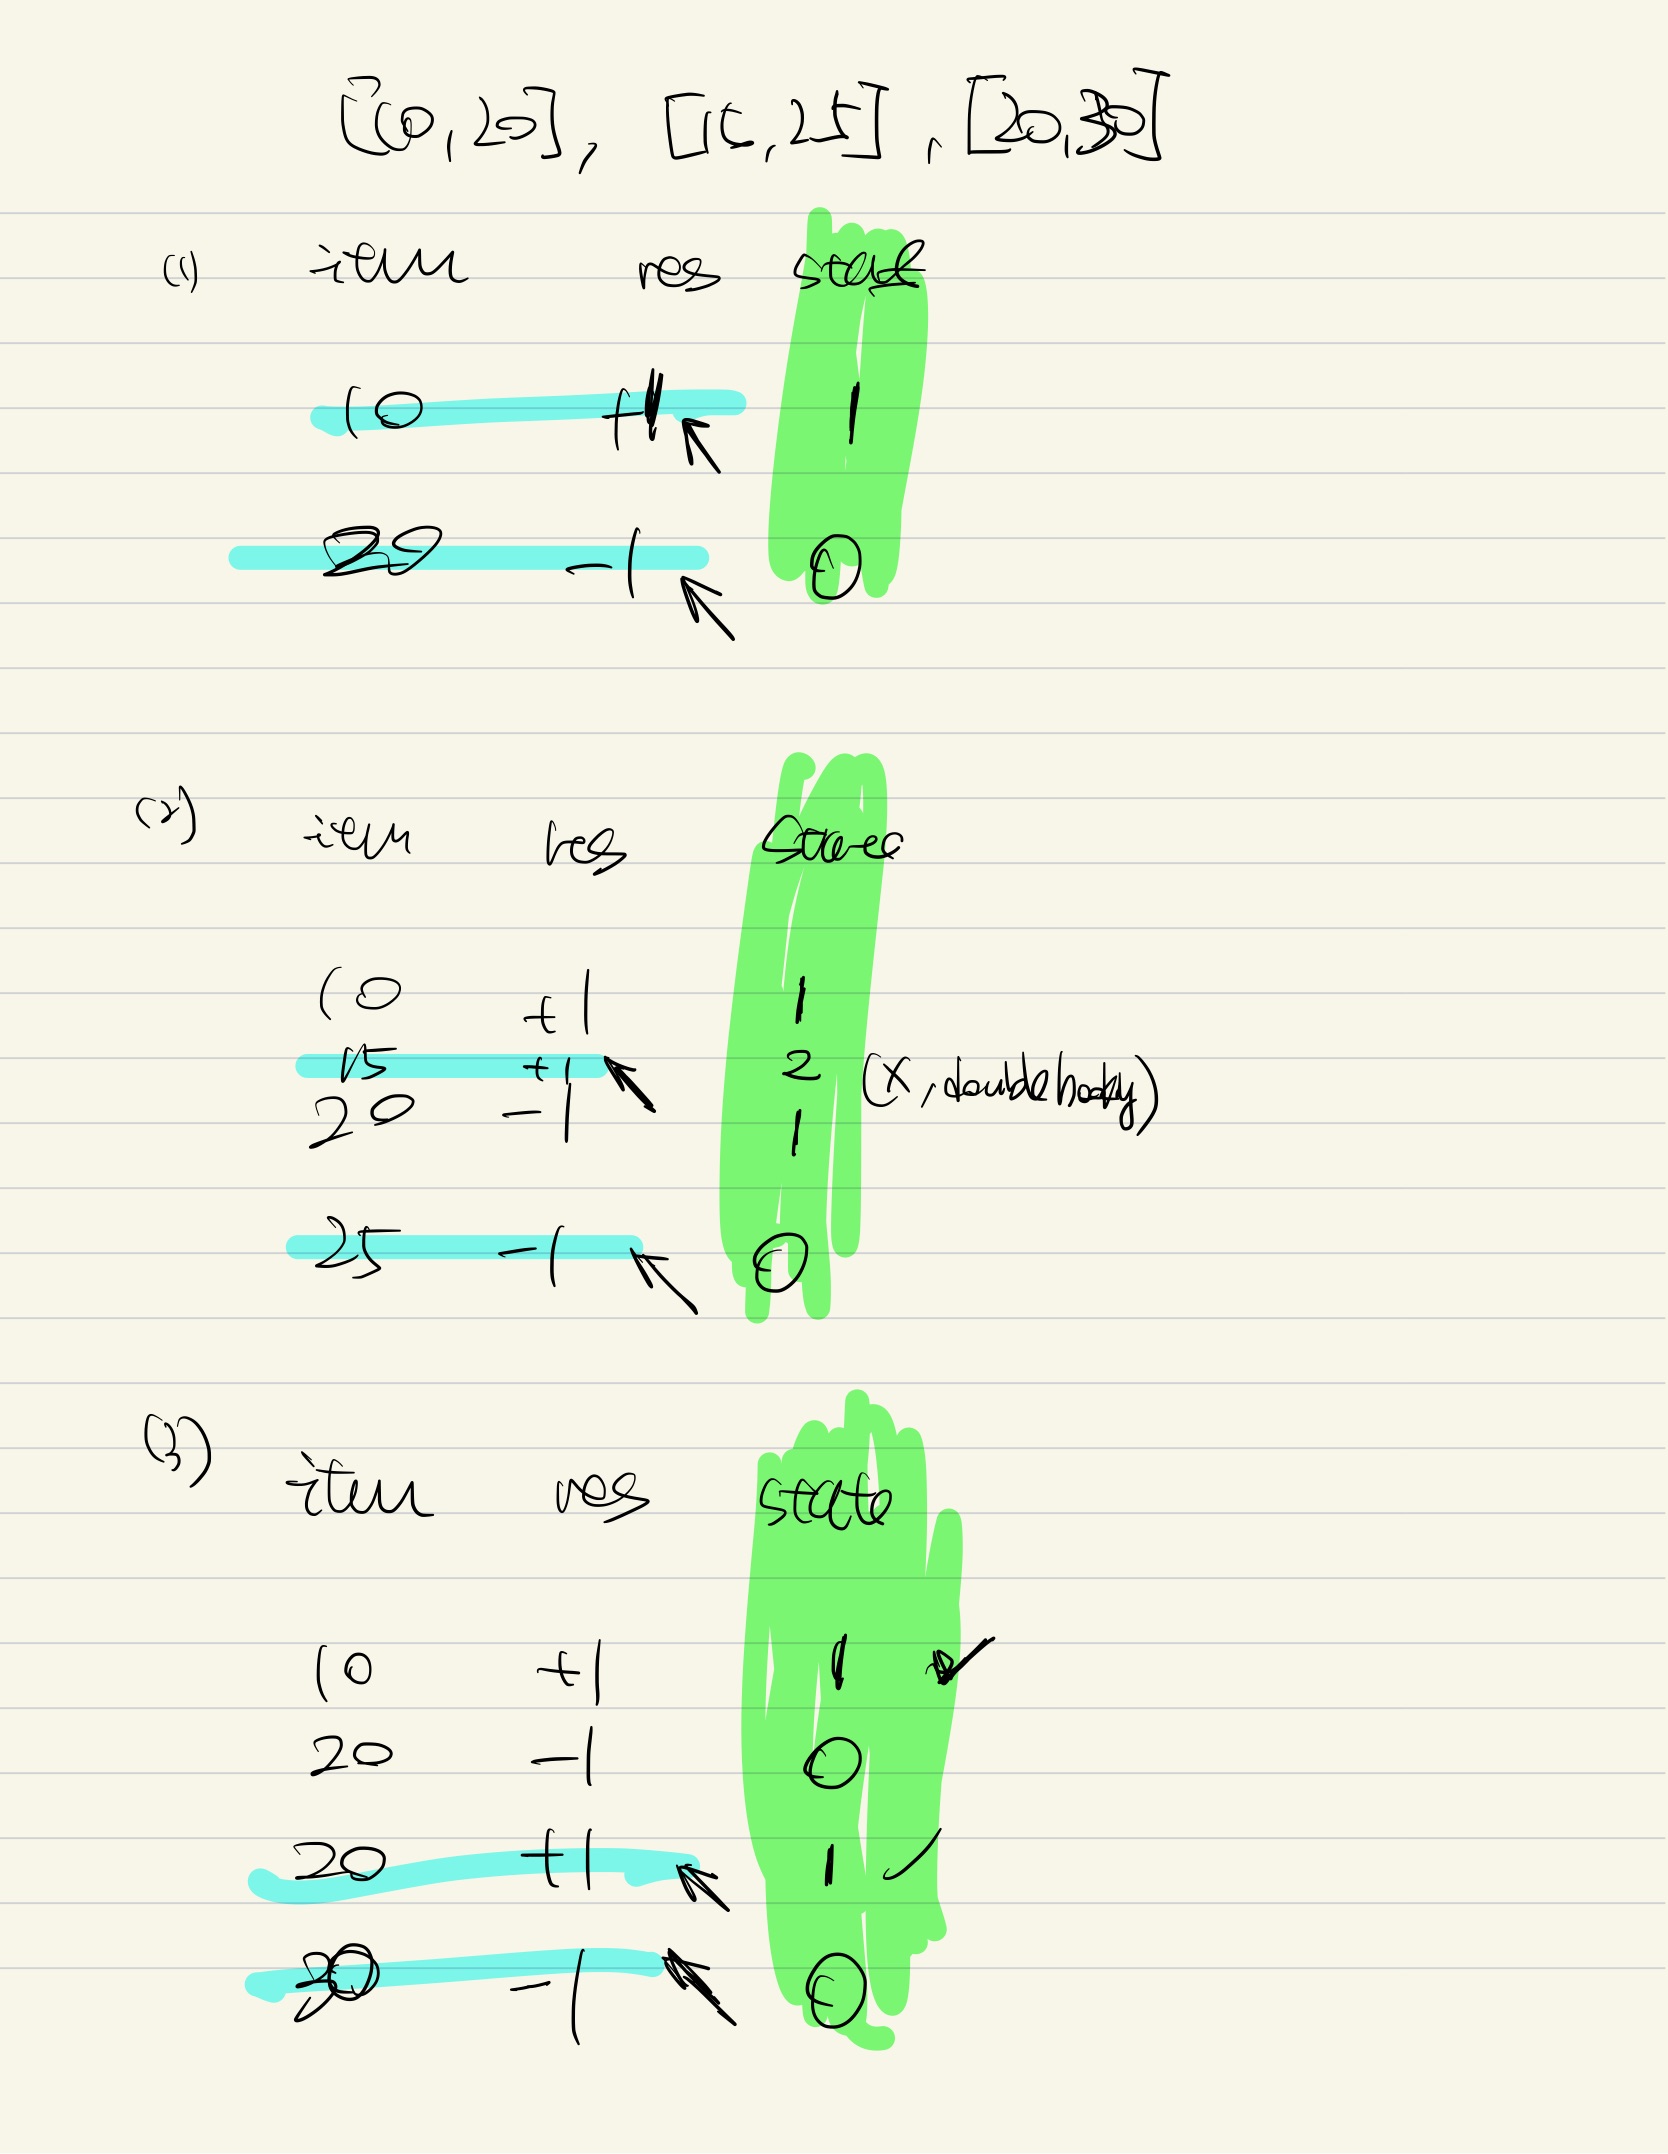 [10,20], [15,25], [20,30]
(1) item res state
10 +1 1
20 -1 0
(2) item res state
10 +1 1
15 +1 2 (X, doublebooky)
20 -1 1
25 -1 0
(3) item res state
10 +1 1 ✓
20 -1 0
20 +1 1 ✓
30 -1 0